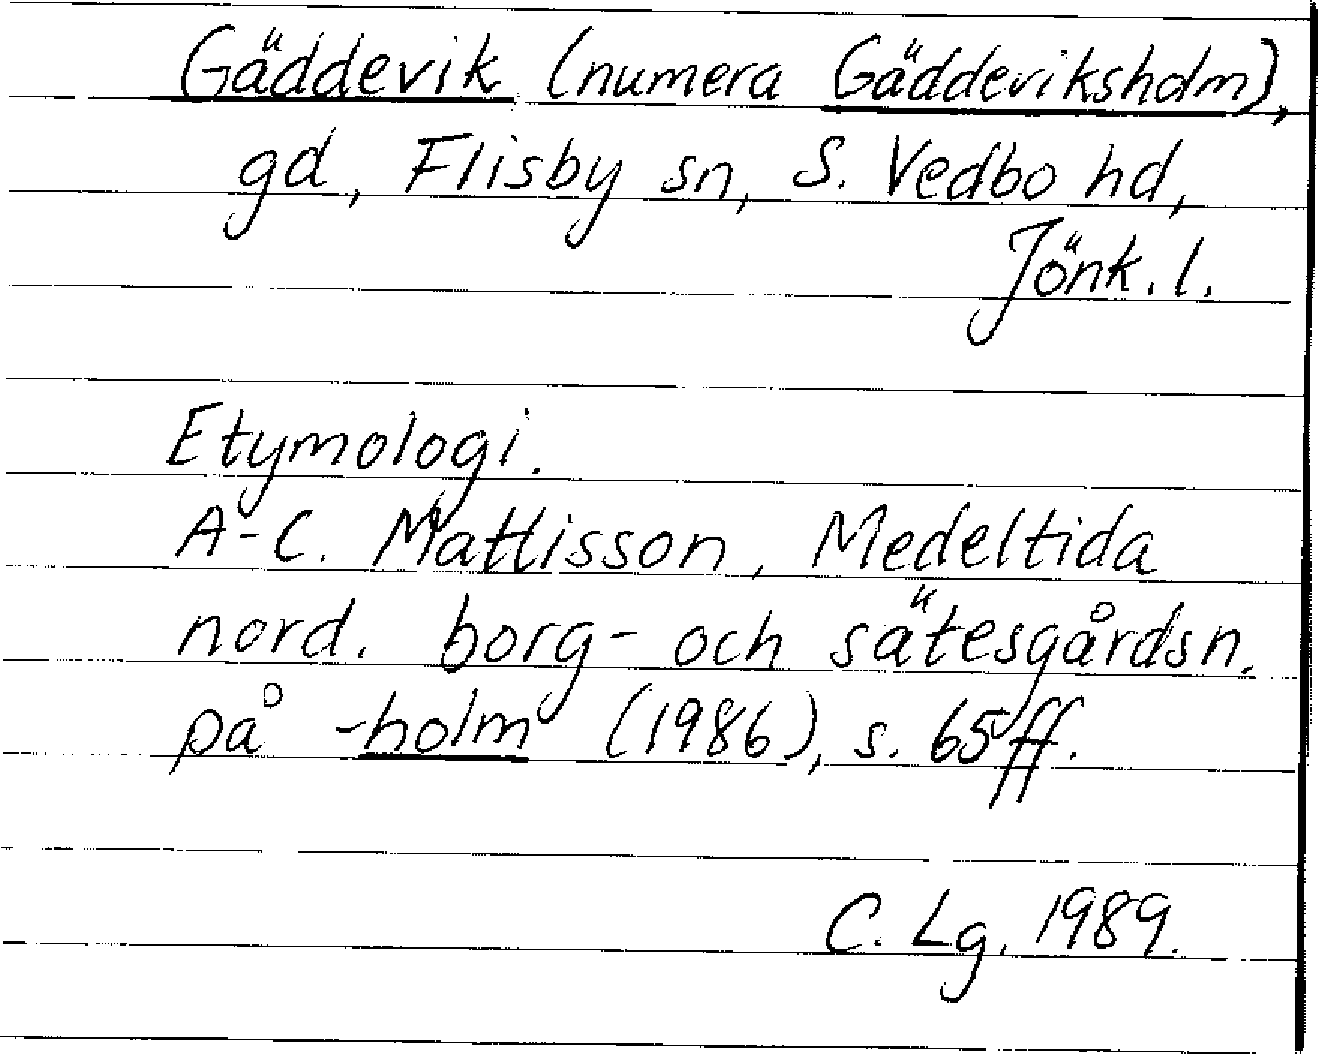 Gäddevik (numera Gäddeviksholm),
gd, Flisby sn, S. Vedbo hd,
Jönk. l.
Etymologi.
A-C. Mattisson, Medeltida
nord. borg- och sätesgårdsn.
på -holm (1986), s. 65 ff.
C. Lg. 1989.